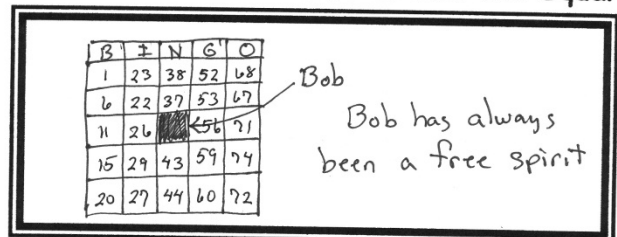 B I N G O
1 23 38 52 68
6 22 37 53 67
11 26 56 71
15 29 43 59 74
20 27 44 60 72
Bob
Bob has always
been a free spirit